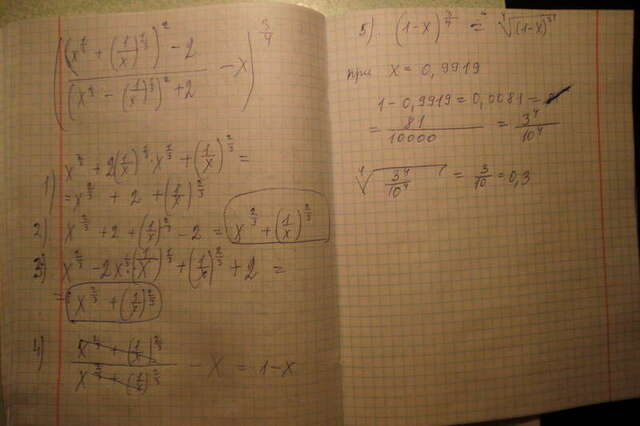 ((x^{1/3} + (1/x)^{1/3})^2 - 2) / ((x^{1/3} - (1/x)^{1/3})^2 + 2) - x)^{3/4}
1) x^{2/3} + 2(1/x)^{1/3} · x^{1/3} + (1/x)^{2/3} =
= x^{2/3} + 2 + (1/x)^{2/3}
2) x^{2/3} + 2 + (1/x)^{2/3} - 2 = x^{2/3} + (1/x)^{2/3}
3) x^{2/3} - 2x^{1/3}(1/x)^{1/3} + (1/x)^{2/3} + 2 =
= x^{2/3} + (1/x)^{2/3}
4) (x^{2/3} + (1/x)^{2/3}) / (x^{2/3} + (1/x)^{2/3}) - x = 1-x
5). (1-x)^{3/4} = ∜((1-x)^3)
при x = 0,9919
1-0,9919 = 0,0081 =
= 81/10000 = 3^4/10^4
∜(3^4/10^4) = 3/10 = 0,3